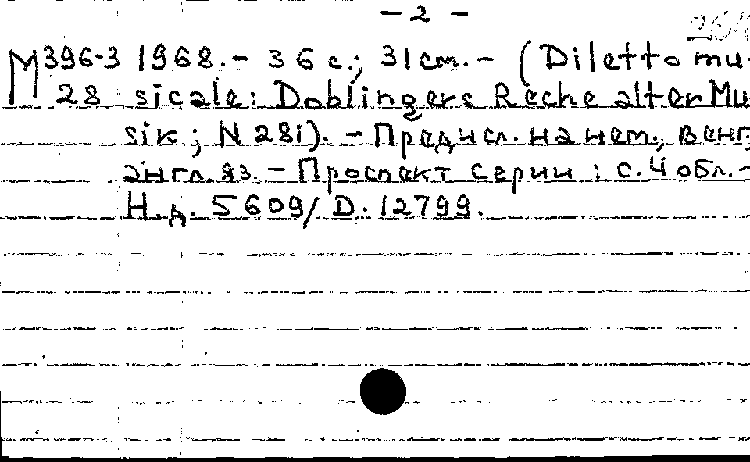 - 2 -
М396-3 1968. - 36 с.; 31 см. - (Diletto mu-
28 sicale: Doblingers Reche alter Mu
sik; N 281). - Предисл. на нем., венг,
англ. яз. - Проспект серии: с. 4 обл. -
Н.д. 5609/ D. 12799.